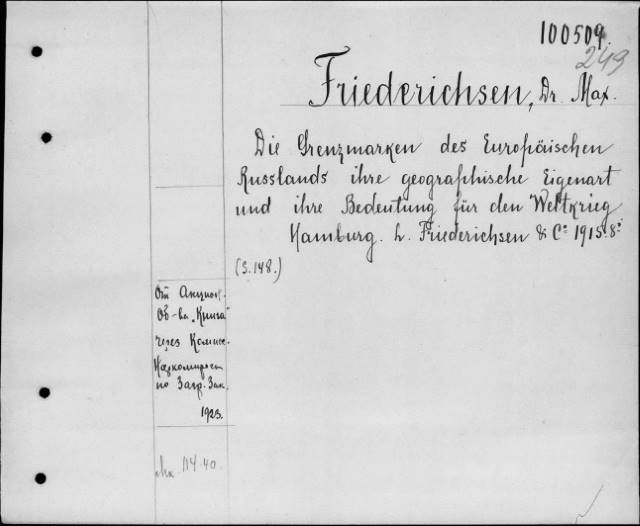 100509.
249
Friederichsen, Dr. Max.
Die Grenzmarken des Europäischen
Russlands ihre geographische Eigenart
und ihre Bedeutung für den Weltkrieg
Hamburg. L. Friederichsen & Cº 1915. 8º
(S. 148.)
От Акцион.
Об-ва „Книга"
через Комис.
Наркомпрос
по Загр. Зак.
1923.
114-40